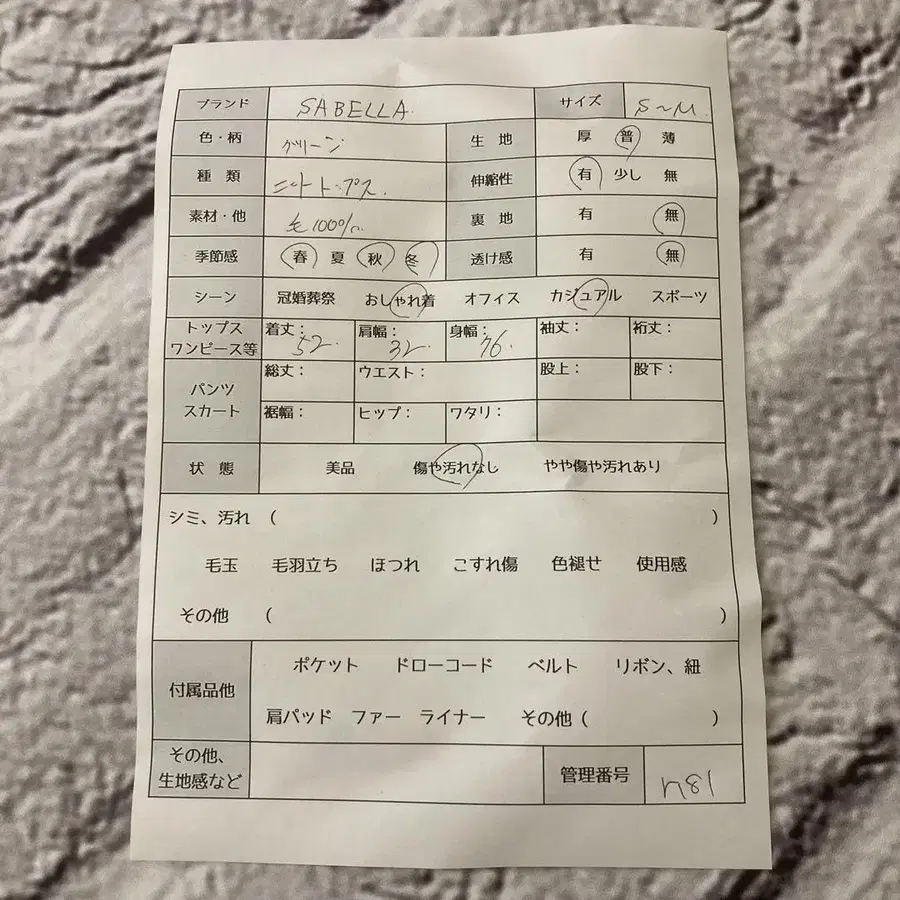 ブランド SABELLA. サイズ S～M.
色・柄 グリーン 生地 厚 普 薄
種類 ニットトップス. 伸縮性 有 少し 無
素材・他 毛100%. 裏地 有 無
季節感 春 夏 秋 冬 透け感 有 無
シーン 冠婚葬祭 おしゃれ着 オフィス カジュアル スポーツ
トップス ワンピース等 着丈： 52. 肩幅： 32. 身幅： 46. 袖丈： 裄丈：
パンツ スカート 総丈： ウエスト： 股上： 股下：
裾幅： ヒップ： ワタリ：
状態 美品 傷や汚れなし やや傷や汚れあり
シミ、汚れ （ ）
毛玉 毛羽立ち ほつれ こすれ傷 色褪せ 使用感
その他 （ ）
付属品他 ポケット ドローコード ベルト リボン、紐
肩パッド ファー ライナー その他（ ）
その他、
生地感など 管理番号